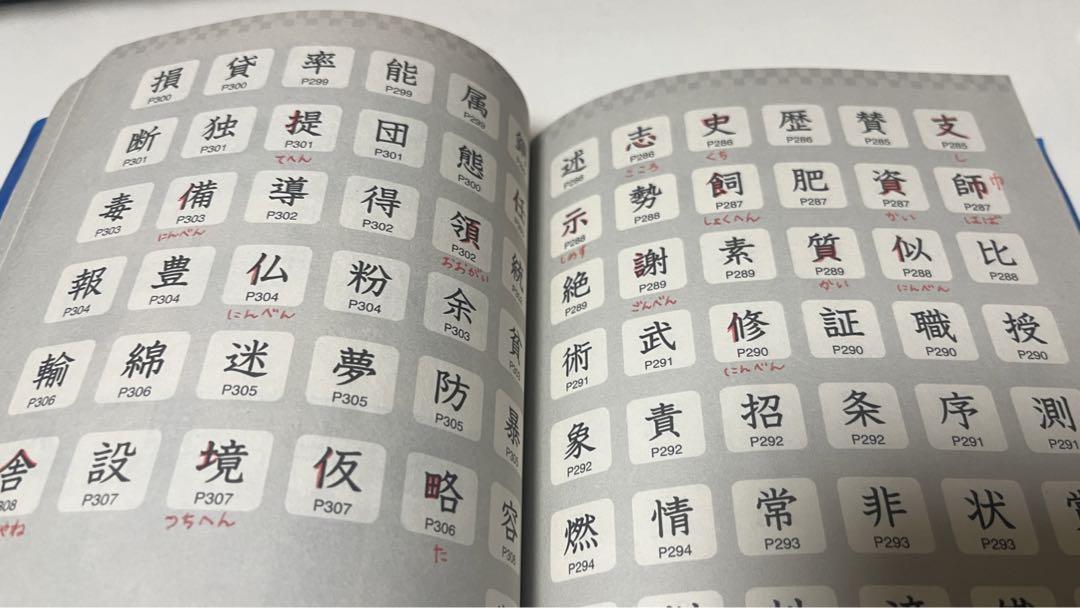 損 貸 率 能 属
P300 P300 P299 P299 P299
断 独 提 団 態
P301 P301 P301 P301 P300
てへん
毒 備 導 得 領 任
P303 P303 P302 P302 P302
にんべん おおがい
報 豊 仏 粉 余 統
P304 P304 P304 P304 P303
にんべん
輸 綿 迷 夢 防 貧
P306 P306 P305 P305 P305
暴
舎 設 境 仮 略 容
P307 P307 P307 P306
やね つちへん た
述 志 史 歴 賛 支
P286 P286 P286 P285 P285
こころ くち し
示 勢 飼 肥 資 師 巾
P288 P288 P287 P287 P287 P287
しめす しょくへん かい はば
絶 謝 素 質 似 比
P289 P289 P289 P289 P288 P288
ごんべん かい にんべん
術 武 修 証 職 授
P291 P291 P290 P290 P290 P290
にんべん
象 責 招 条 序 測
P292 P292 P292 P292 P291 P291
燃 情 常 非 状
P294 P294 P293 P293 P293